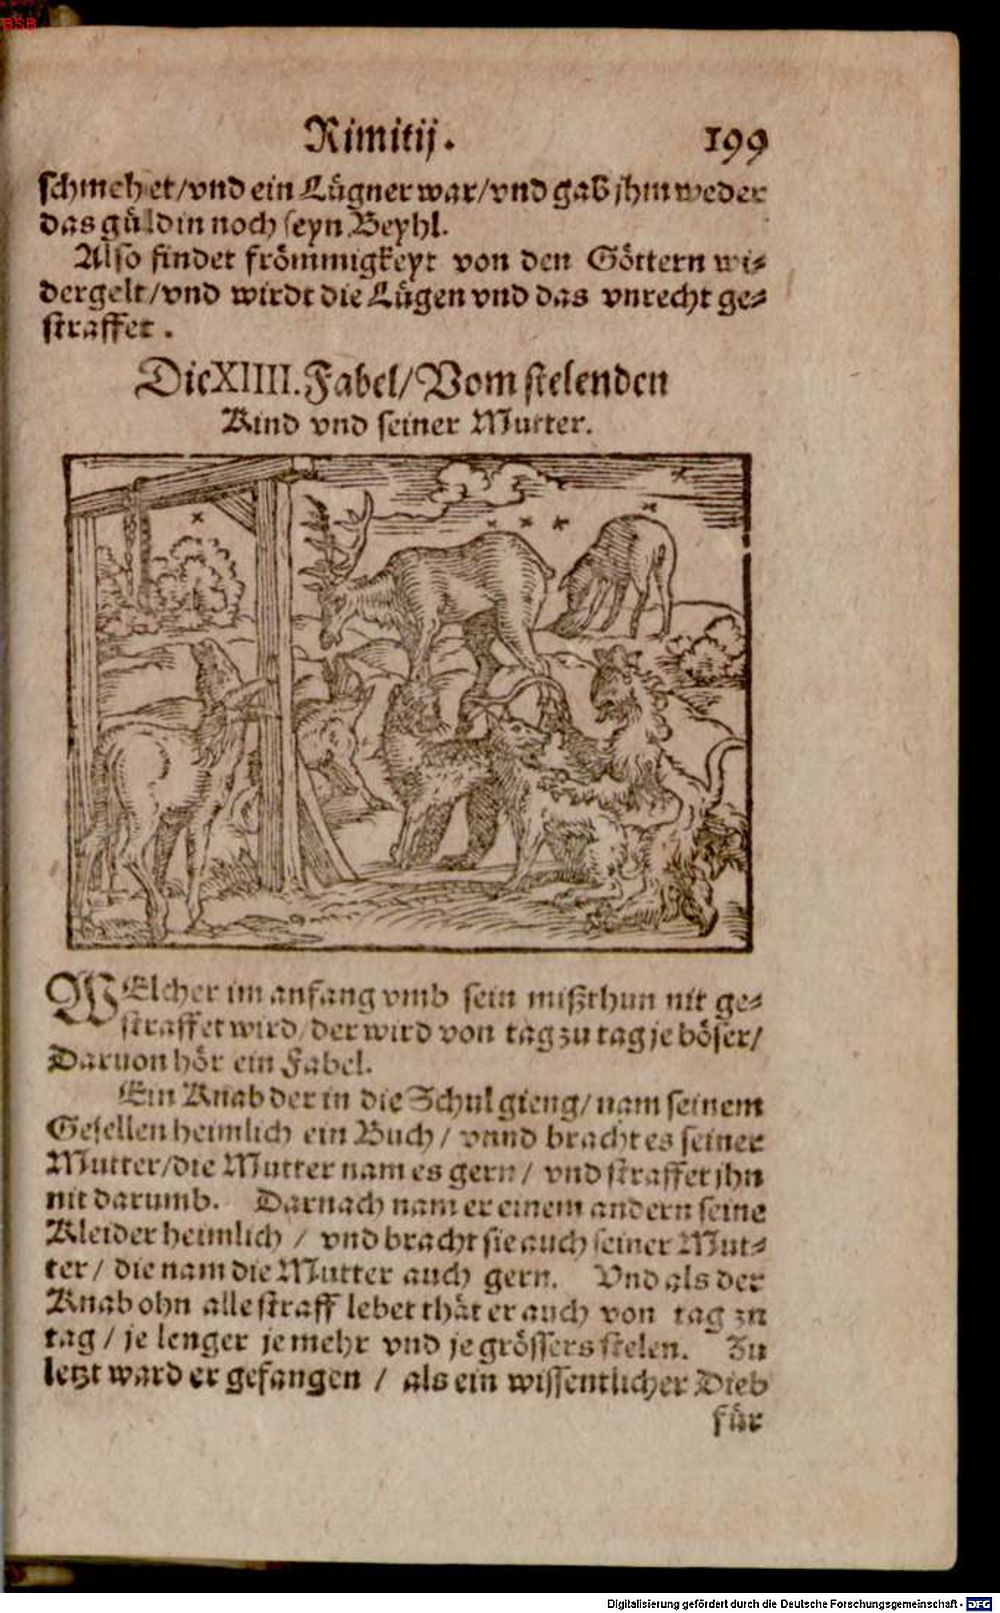 BSB
Rimitij. 199
schmehet/vnd ein Lügner war/vnd gab jhm weder
das güldin noch seyn Beyhl.
Also findet frömmigkeyt von den Göttern wi⸗
dergelt/vnd wirdt die Lügen vnd das vnrecht ge⸗
straffet.
Die XIIII. Fabel/Vom stelenden
Kind vnd seiner Mutter.
WElcher im anfang vmb sein mißthun nit ge⸗
straffet wird/der wird von tag zu tag je böser/
Daruon hör ein Fabel.
Ein Knab der in die Schul gieng/nam seinem
Gesellen heimlich ein Buch/ vnnd bracht es seiner
Mutter/die Mutter nam es gern/ vnd straffet jhn
nit darumb. Darnach nam er einem andern seine
Kleider heimlich / vnd bracht sie auch seiner Mut⸗
ter/ die nam die Mutter auch gern. Vnd als der
Knab ohn alle straff lebet thät er auch von tag zu
tag / je lenger je mehr vnd je grössers stelen. Zu
letzt ward er gefangen / als ein wissentlicher Dieb
für
Digitalisierung gefördert durch die Deutsche Forschungsgemeinschaft - DFG